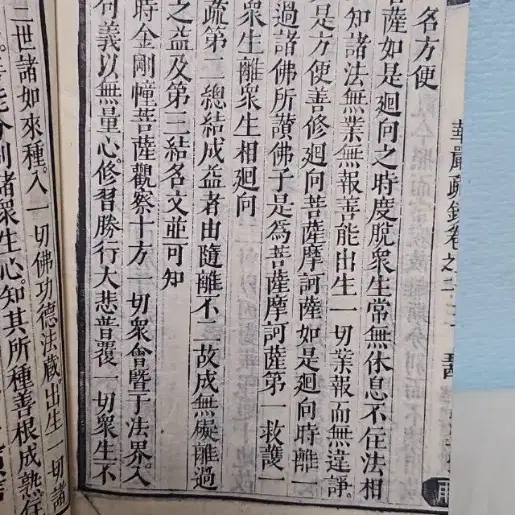 華嚴疏鈔卷之
名方便
菩薩如是迴向之時度脫衆生常無休息不住法相
知諸法無業無報善能出生一切業報而無違諍。
是方便善修迴向菩薩摩訶薩如是迴向時離一
過諸佛所讚佛子是爲菩薩摩訶薩第一救護一
衆生離衆生相迴向
疏第二總結成益者由隨離不二故成無礙離過
之益及第三結名文並可知
時金剛幢菩薩觀察十方一切衆會曁于法界。入
句義以無量心。修習勝行大悲普覆一切衆生不
三世諸如來種。入一切佛功德法藏。出生一切諸
能分別諸衆生心。知其所種善根成熟。住